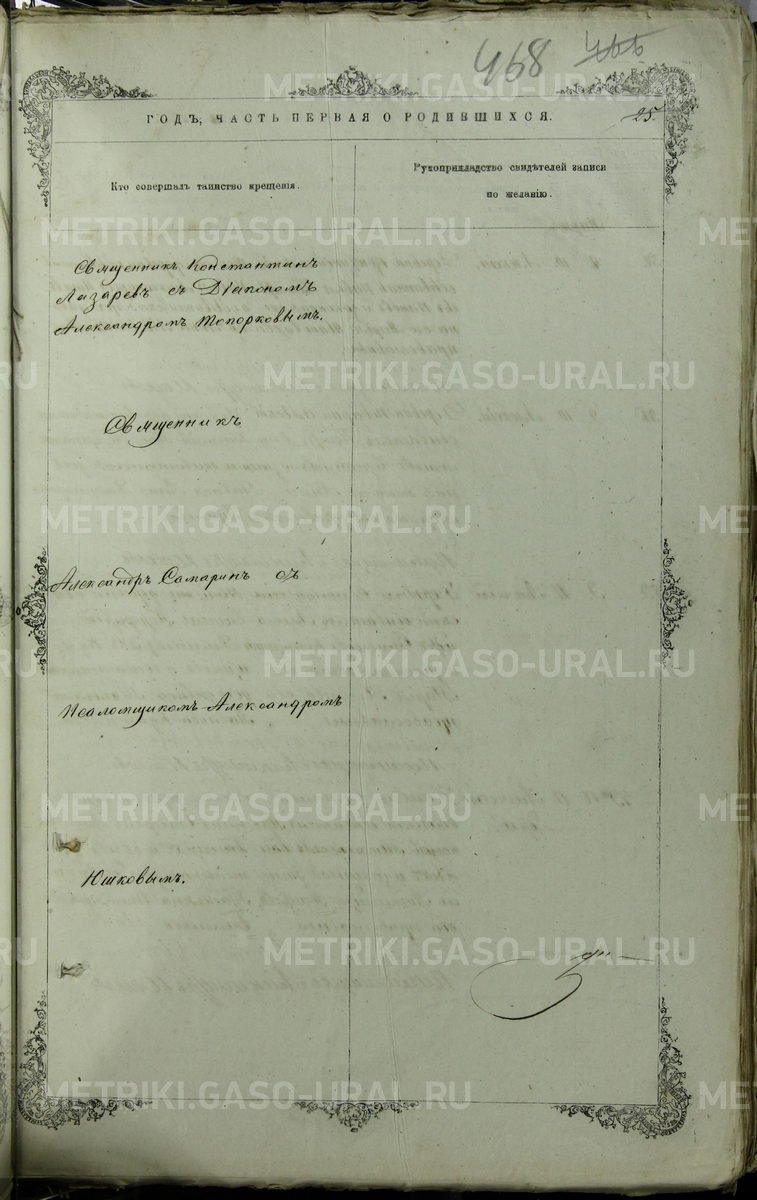 468 466
ГОДЪ, ЧАСТЬ ПЕРВАЯ О РОДИВШИХСЯ.
25.
Кто совершалъ таинство крещенія.
Рукоприкладство свидѣтелей записи
по желанію.
Священникъ Константинъ
Лазаревъ съ Діакономъ
Александромъ Топорковымъ.
Священникъ
Александръ Самаринъ съ
Псаломщикомъ Александромъ
Юшковымъ.
METRIKI.GASO-URAL.RU